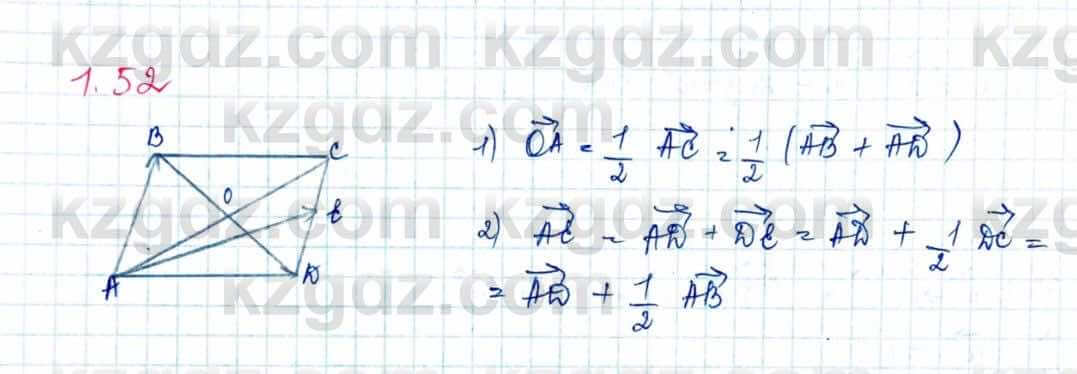 kzgdz.com kzgdz.com kzg
1.52
kzgdz.com
B C O E A D
1) OA⃗ = 1/2 AC⃗ = 1/2 (AB⃗ + AD⃗)
kzgdz.com kzgdz.com kzg
2) AE⃗ = AD⃗ + DE⃗ = AD⃗ + 1/2 DC⃗ =
= AD⃗ + 1/2 AB⃗
kzgdz.com